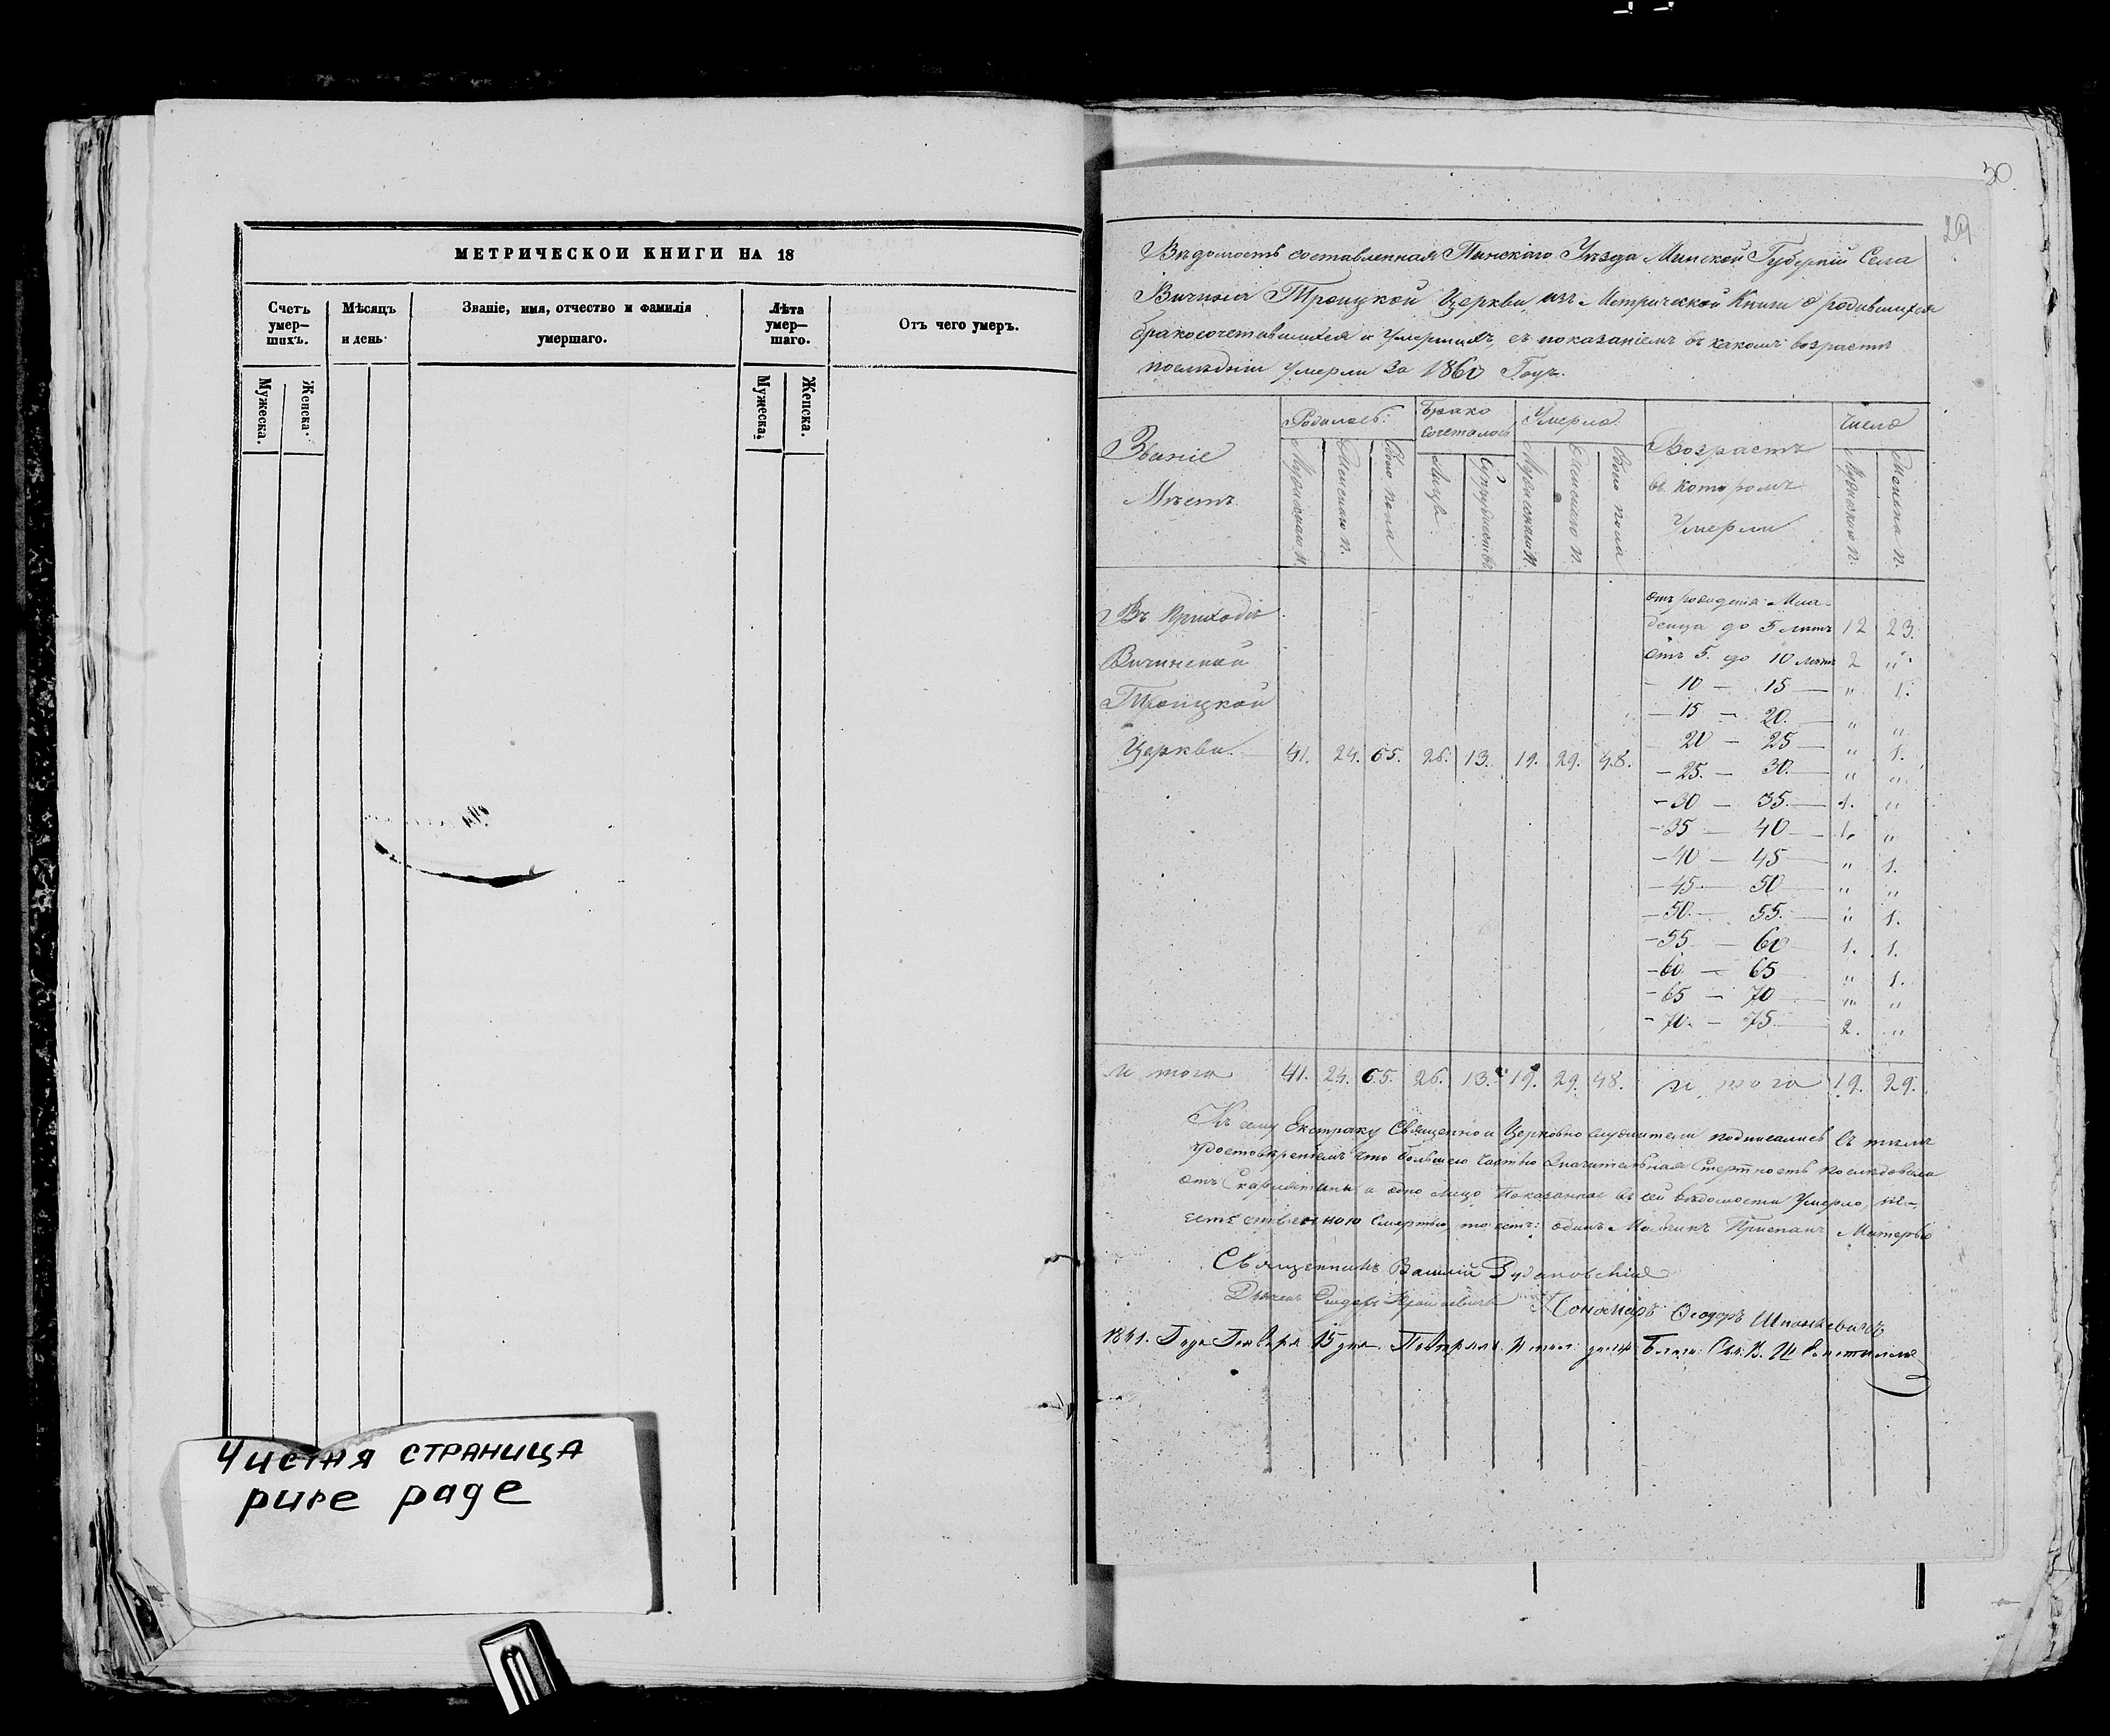 МЕТРИЧЕСКОИ КНИГИ НА 18
Счетъ умер— шихъ.
Мѣсяцъ и день·
Званіе, имя, отчество и фамилія умершаго.
Лѣта умер— шаго.
Отъ чего умеръ.
Мужеска.
Женска.
Мужеска.
Женска.
Чистая страница
pure page
30.
29
Вѣдомость составленная Пинскаго Уѣзда Минской Губерніи Села
Вичина Троицкой Церкви, изъ Метрической Книги о родившихся
бракосочетавшихся и умершихъ, съ показаніемъ въ какомъ возрастѣ
послѣдніи умерли за 1860 Годъ.
Званіе Мѣстъ
Родилось:
Брако сочеталось
Умерло:
Возрастъ въ которомъ Умерли
Число
Мужскаго п.
Женскаго п.
Обоо пола
Лицъ
Супружествъ
Мужскаго п.
Женскаго п.
Обоо пола
Мужскаго п.
Въ Приходѣ
Вичинской
Троицкой
Церкви. 41. 24. 65. 26. 13. 19. 29. 48.
отъ рожденія Мла-
денца до 5 лѣтъ 12 23.
отъ 5. до 10 лѣтъ 2 "
— 10 — 15 — " 1.
— 15 — 20. — " "
20 — 25 — " 1.
— 25. — 30. — " "
— 30 — 35. — 1. "
— 35 — 40 — 1. "
— 40 — 45 — " 1.
— 45 — 50 — " "
— 50. — 55. — " 1.
— 55 — 60 — 1. 1.
— 60 — 65 " 1.
— 65 — 70 — " "
— 70. — 75 — 2. "
И того 41. 24. 65. 26. 13. 19. 29. 48. И того 19. 29.
Къ сему Екстракту Священно и Церковно служители подписались съ тѣмъ
удостовѣреніемъ что большею частью значительная Смертность послѣдовала
отъ а одно лицо показанное въ сей вѣдомости умерло, не-
естественною смертью, то есть: одинъ Мальчикъ Приспанъ Матерью
Священникъ Василій
Пономарь Ѳеодоръ
Года Января 15 дня.